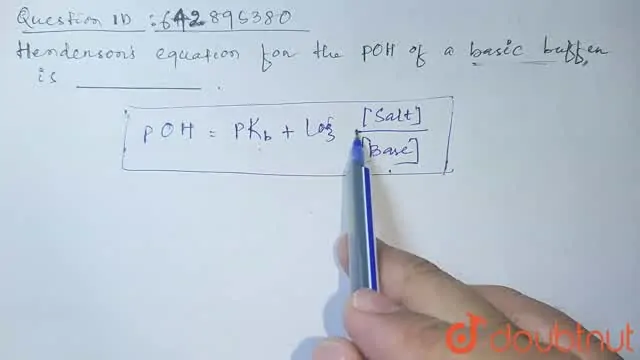 Question ID : 642895380
Henderson's equation for the pOH of a basic buffer
is ________ .
pOH = PKb + Log [Salt] / [Base]
doubtnut